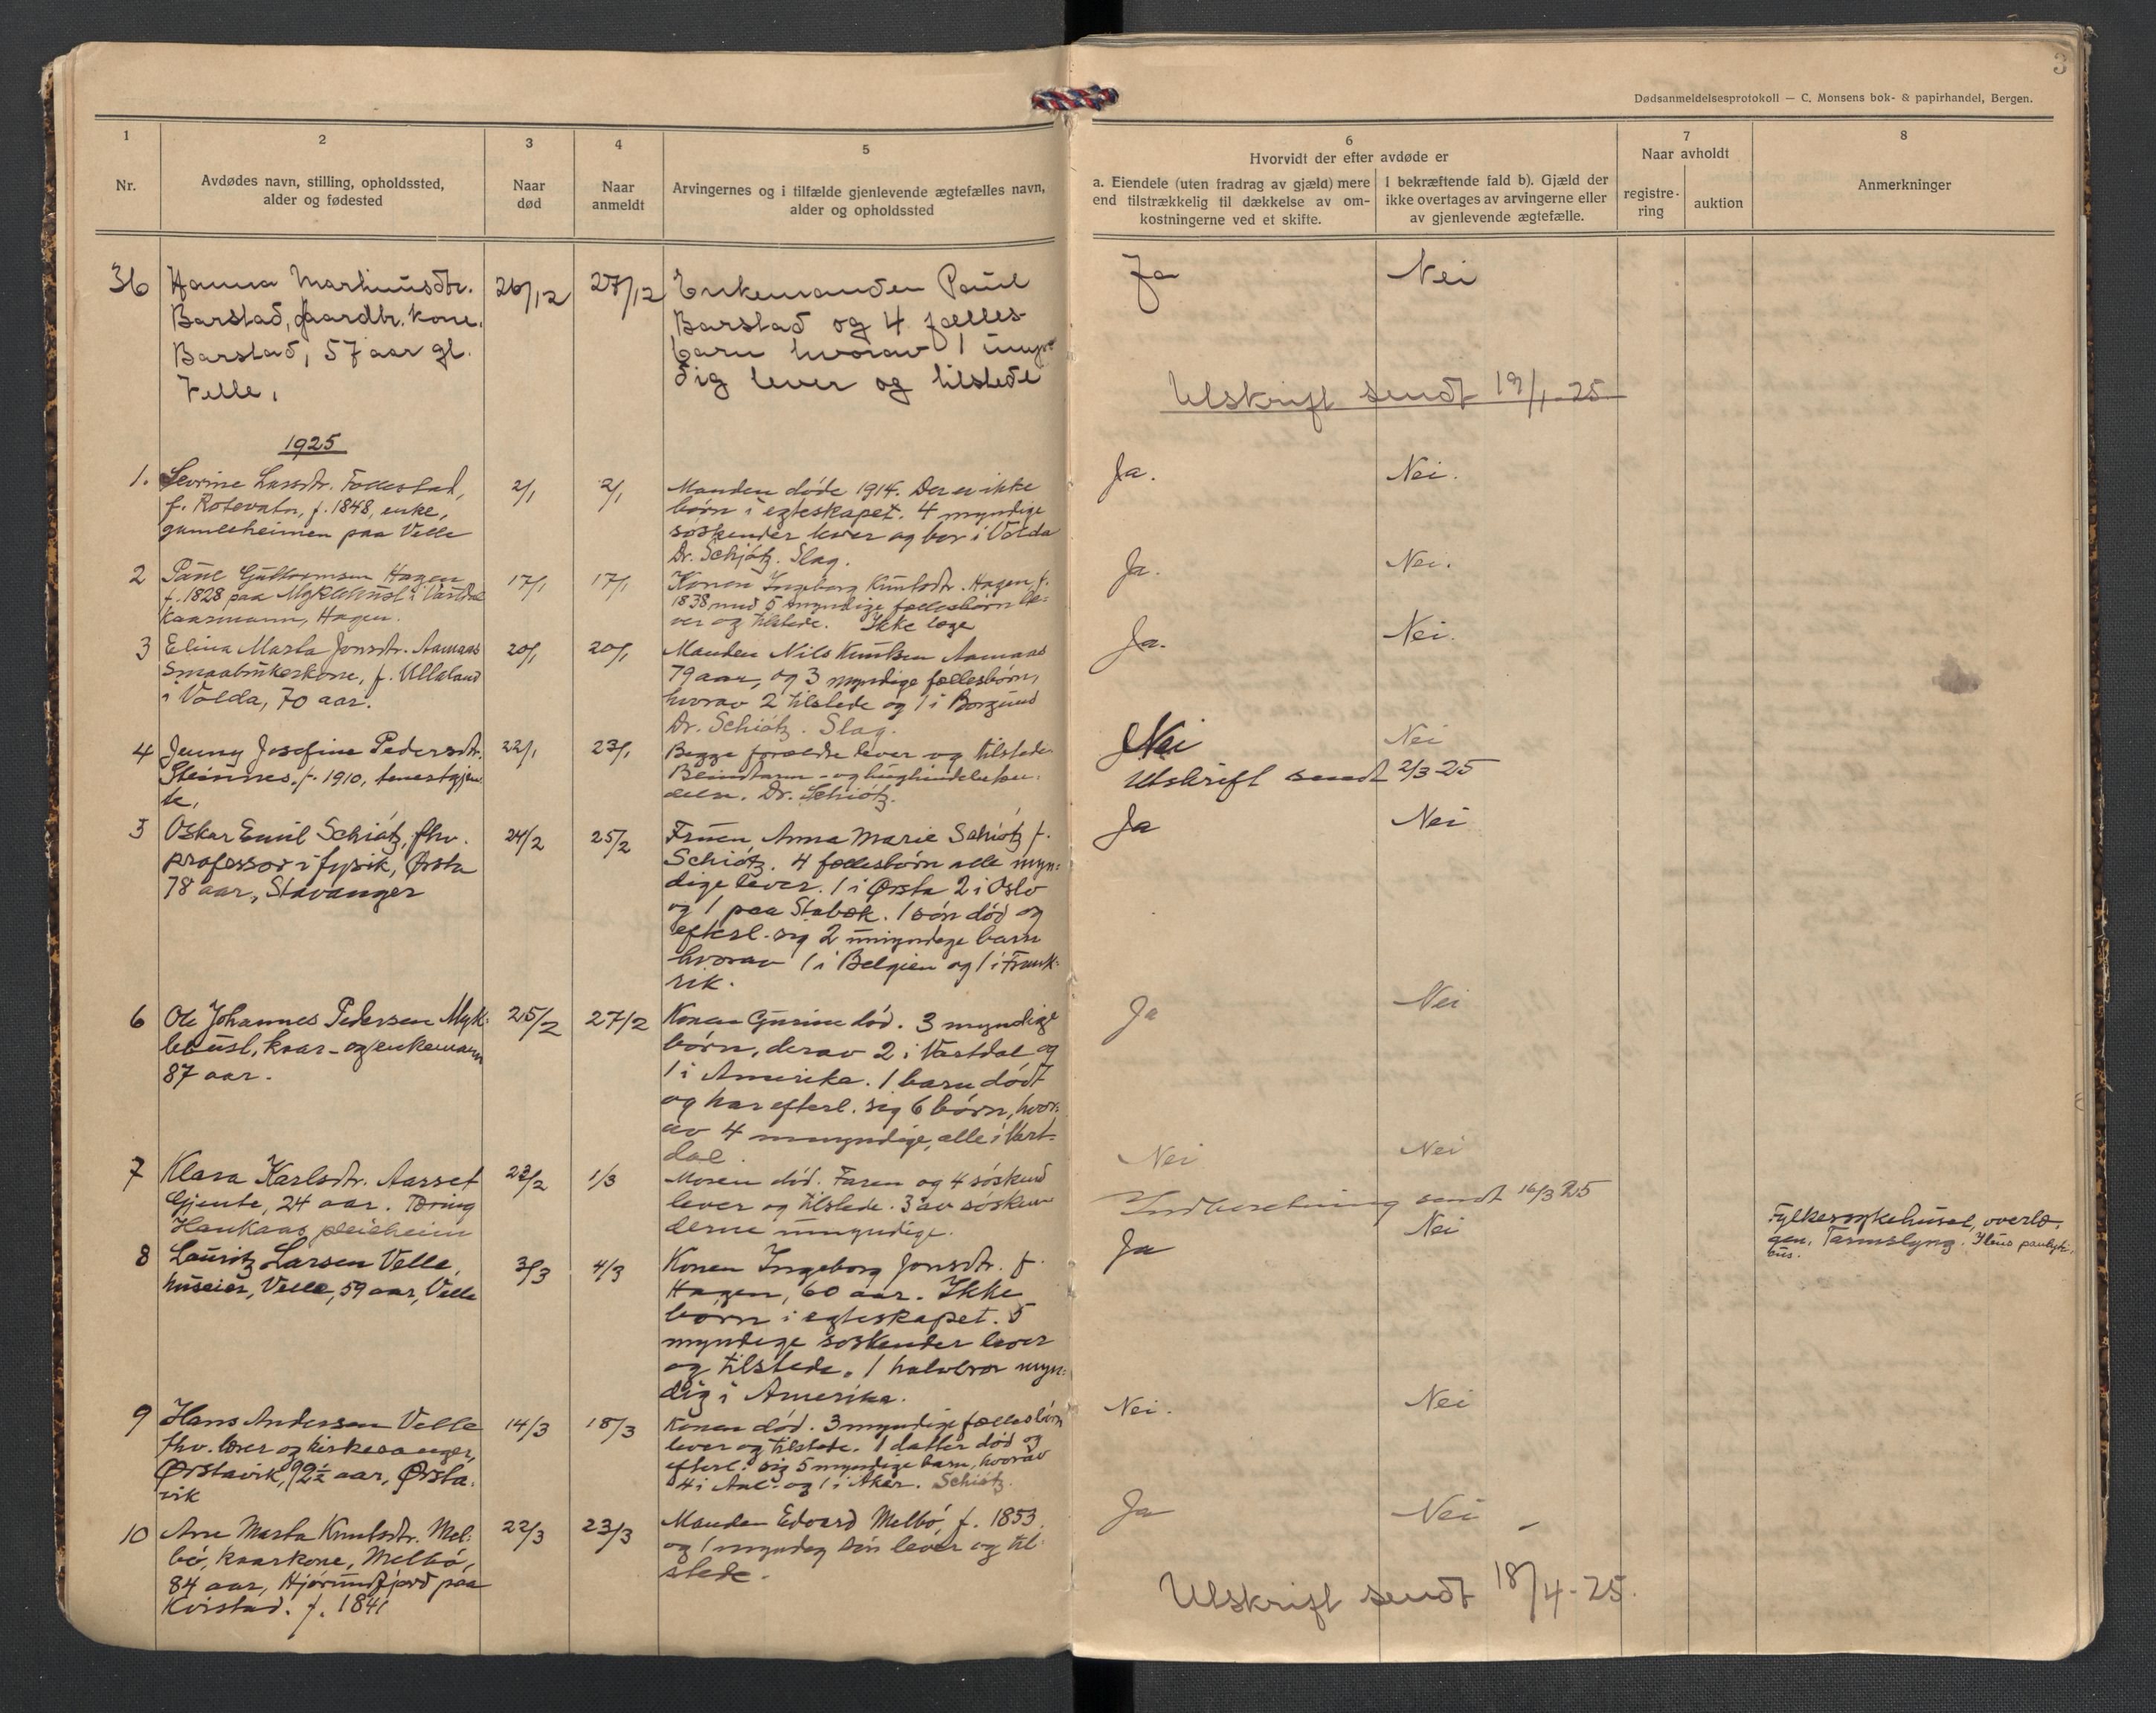 3
Dødsanmeldelsesprotokoll — C. Monsens bok- & papirhandel, Bergen.
1
Nr.
2
Avdødes navn, stilling, opholdssted,
alder og fødested
3
Naar
død
4
Naar
anmeldt
5
Arvingernes og i tilfælde gjenlevende ægtefælles navn,
alder og opholdssted
6
Hvorvidt der efter avdøde er
a. Eiendele (uten fradrag av gjæld) mere
end tilstrækkelig til dækkelse av om-
kostningerne ved et skifte.
I bekræftende fald b). Gjæld der
ikke overtages av arvingerne eller
av gjenlevende ægtefælle.
7
Naar avholdt
registre-
ring
auktion
8
Anmerkninger
36
Hanna Marhinusdtr.
Barstad, gaardbr. kone.
Barstad, 57 aar gl.
Velle.
26/12
27/12
Enkemanden Paul
Barstad og 4 fælles-
barn hvorav 1 umyn
dig lever og tilstede
Ja
Nei
Utskrift sendt 19/1-25
1925
1.
Sevrine Larsdtr. Follestad,
f. Rotevatn, f. 1848, enke,
gamleheimen paa Velle
2/1
2/1
Manden døde 1914. Der er ikke
børn i egteskapet. 4 myndige
søskender lever og bor i Volda
Dr. Schiøtz. Slag.
Ja.
Nei.
2
Paul Guttormsen Hagen
f. 1828 paa Myklebust i Vartdal
Kaarmann, Hagen.
17/1
17/1
Konen Ingeborg Knutsdtr. Hagen, f.
1838 med 5 myndige fællesbørn le-
ver og tilstede. Ikke læge
Ja.
Nei.
3
Elina Marta Jonsdtr. Aamaas
Smaabrukerkone, f. Ulleland
i Volda, 70 aar.
20/1
20/1
Manden Nils Knutsen Aamaas
79 aar, og 3 myndige fællesbørn,
hvorav 2 tilstede og 1 i Borgund
Dr. Schiøtz. Slag.
Ja.
Nei.
4
Jenny Josefine Pedersdtr.
Steinnes. f. 1910, tenestgjen
te.
22/1
23/1
Begge foreldre lever og tilstede
Blindtarm- og bughindebeten-
delse. Dr. Schiøtz.
Nei
Nei
Utskrift sendt 2/3 25
5
Oskar Emil Schiøtz, fhv.
professor i fysik, Ørsta
78 aar, Stavanger
24/2
25/2
Fruen Anna Marie Schiøtz f.
Schiøtz. 4 fællesbørn alle myn-
dige lever. 1 i Ørsta 2 i Oslo
og 1 paa Stabæk. 1 søn død og
efterl. sig 2 umyndige barn
hvorav 1 i Belgien og 1 i Frank-
rik.
Ja
Nei
6
Ole Johannes Pedersen Myk-
lebust, kaar- og enkemann
87 aar.
25/2
27/2
Konen Gurine død. 3 myndige
børn, derav 2 i Vartdal og
1 i Amerika. 1 barn dødt
og har efterl. sig 6 børn, hvor-
av 4 umyndige, alle i Vart-
dal.
Ja
Nei
7
Klara Karlsdtr. Aarset
Gjente, 24 aar. Tæring
Haukaas pleieheim
28/2
1/3
Moren død. Faren og 4 søskend
lever og tilstede. 3 av søsken
derne umyndige.
Nei
Nei
Indberetning sendt 16/3 25
8
Lauritz Larsen Velle,
huseier, Velle, 59 aar, Velle
3/3
4/3
Konen Ingeborg Jonsdtr. f.
Hagen, 60 aar. Ikke
børn i egteskapet. 5
myndige søskender lever
og tilstede. 1 halvbror myn-
dig i Amerika.
Ja
Nei
Fylkessykehuset, overlæ-
gen. Tarmslyng. Ileus paralyti-
cus.
9
Hans Andersen Velle
fhv. lærer og kirkesanger,
Ørstavik, 92½ aar, Ørsta-
vik
14/3
18/3
Konen død. 3 myndige fællesbørn
lever og tilstede. 1 datter død og
efterl. sig 5 myndige barn, hvorav
4 i og 1 i Aker. Schiøtz.
Nei.
Nei
10
Ane Marta Knutsdtr. Mel-
bø, kaarkone, Melbø,
84 aar, Hjørundfjord paa
Kvistad. f. 1841
22/3
23/3
Manden Edvard Melbø, f. 1853.
og 1 myndig søn lever og til
stede.
Ja
Nei
Utskrift sendt 18/4-25.